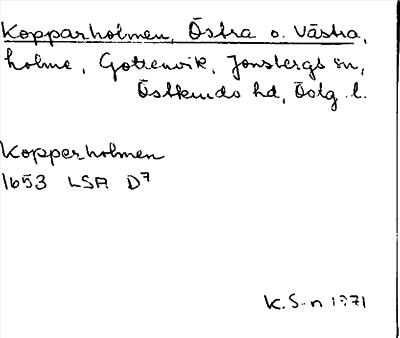 Kopparholmen, Östra o. Västra,
holme, Gottenvik, Jonsbergs sn,
Östkinds hd, Östg. l.
Kopperholmen
1653 LSA D7
K. S-n 1971